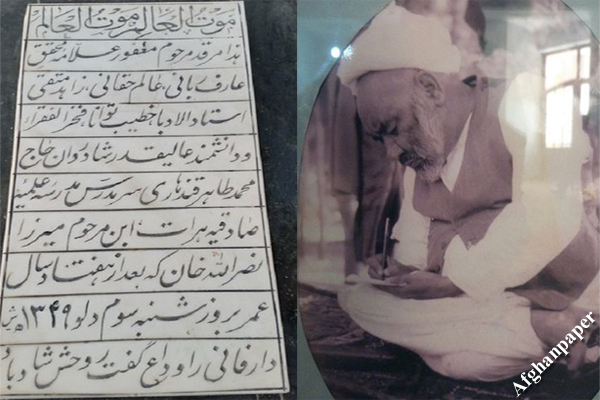 موت العالِم موت العالَم
هذا مرقد مرحوم مغفور علامه محقق
عارف ربانی، عالم حقانی، زاهد متقی
استاد الادبا خطیب توانا فخر الفقراء
و دانشمند عالیقدر شادروان حاج
محمد طاهر قندهاری سر مدرس مدرسه علمیه
صادقیه هرات ابن مرحوم میرزا
نصر الله خان که بعد از هفتاد سال
عمر بروز شنبه سوم دلو ۱۳۴۹ ه ش
دار فانی را وداع گفت روحش شاد باد
Afghanpaper